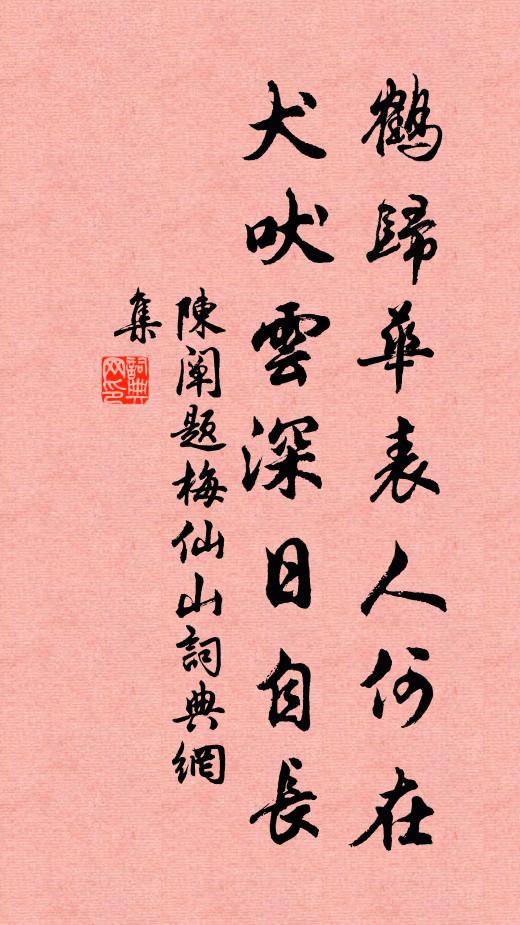 鶴歸華表人何在
犬吠雲深日自長
陳闡題梅仙山詞典網
集
詞典
网印